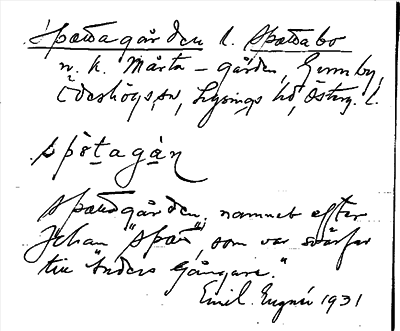 Spædagården l. Spædabo
n. k. Mårta-gården, Gummby,
Ödeshögs sn, Lysings hd, Österg. l.
spø̄tagá̄n
Spændgården, namnet efter
Johan "Spæn", som var svärfar
till "Anders Gångare."
Emil. Engnér 1931